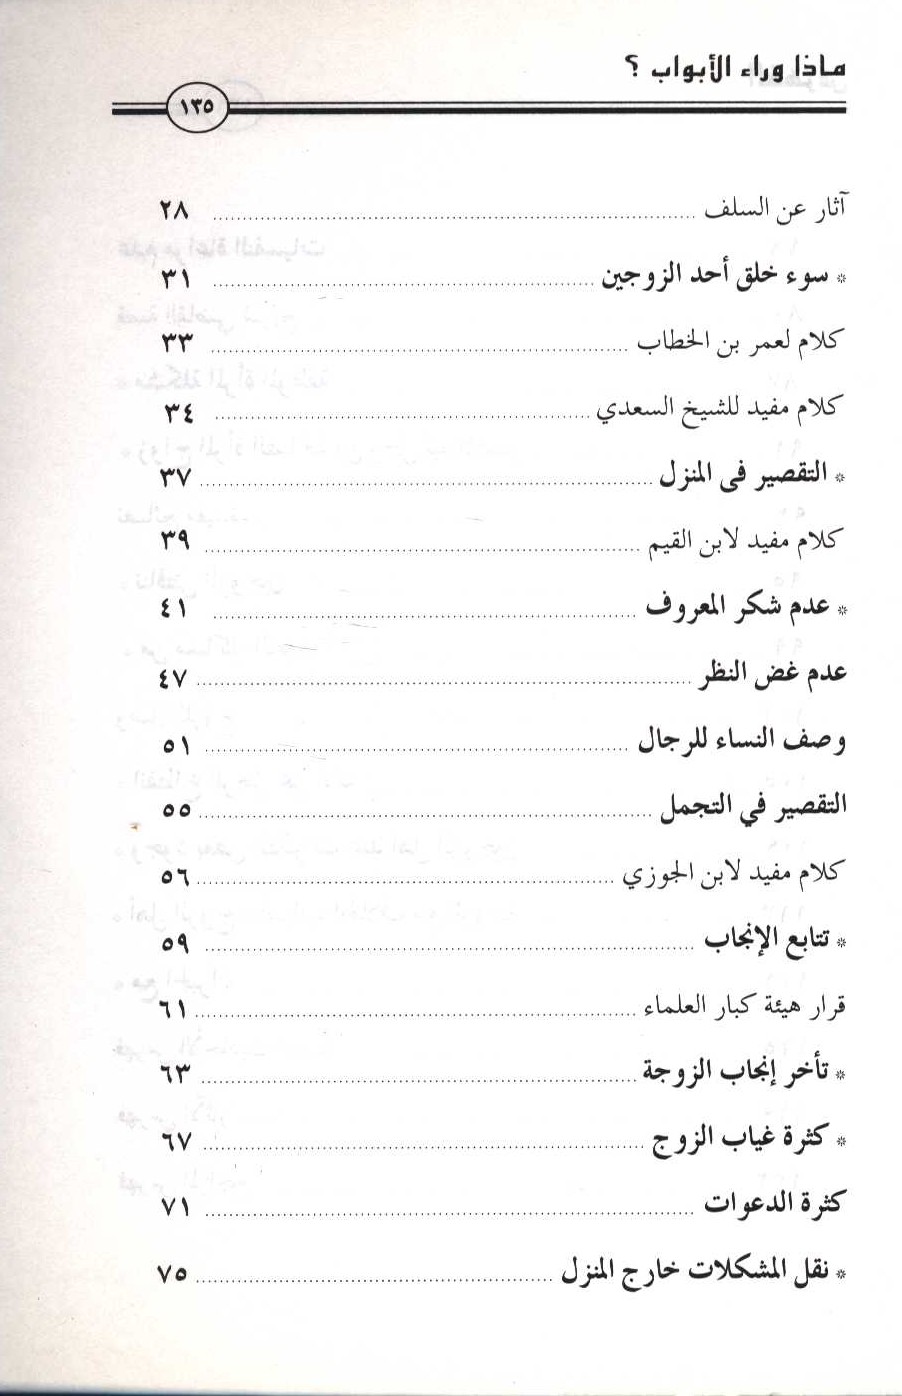 ماذا وراء الأبواب ؟
١٣٥
آثار عن السلف ........ ٢٨
* سوء خلق أحد الزوجين ........ ٣١
كلام لعمر بن الخطاب ........ ٣٣
كلام مفيد للشيخ السعدي ........ ٣٤
* التقصير فى المنزل ........ ٣٧
كلام مفيد لابن القيم ........ ٣٩
* عدم شكر المعروف ........ ٤١
عدم غض النظر ........ ٤٧
وصف النساء للرجال ........ ٥١
التقصير في التجمل ........ ٥٥
كلام مفيد لابن الجوزي ........ ٥٦
* تتابع الإنجاب ........ ٥٩
قرار هيئة كبار العلماء ........ ٦١
* تأخر إنجاب الزوجة ........ ٦٣
* كثرة غياب الزوج ........ ٦٧
كثرة الدعوات ........ ٧١
* نقل المشكلات خارج المنزل ........ ٧٥